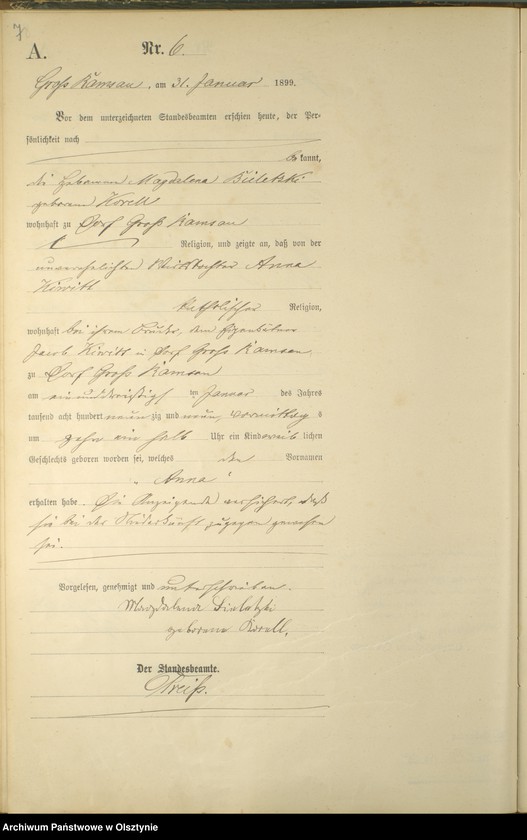 7
A.
Nr. 6.
Groß Kämsau, am 31. Januar 1899.
Vor dem unterzeichneten Standesbeamten erschien heute, der Per-
sönlichkeit nach
be kannt,
die Hebamme Magdalena Bieletzki
geborene Korell
wohnhaft zu Dorf Groß Kämsau
Religion, und zeigte an, daß von der
unverehelichten Anna
katholischer Religion,
wohnhaft bei ihrem Bruder, dem Eigenkätner
Jacob in Dorf Groß Kämsau
zu Dorf Groß Kämsau
am einunddreißigsten Januar des Jahres
tausend acht hundert neun zig und neun, Vormittags
um zehn ein halb Uhr ein Kind weib lichen
Geschlechts geboren worden sei, welches den Vornamen
Anna
erhalten habe. Die Anzeigende versichert, daß
sie bei der Niederkunft zugegen gewesen
sei.
Vorgelesen, genehmigt und unterschrieben.
Magdalena Bieletzki
geborene Korell.
Der Standesbeamte.
Archiwum Państwowe w Olsztynie